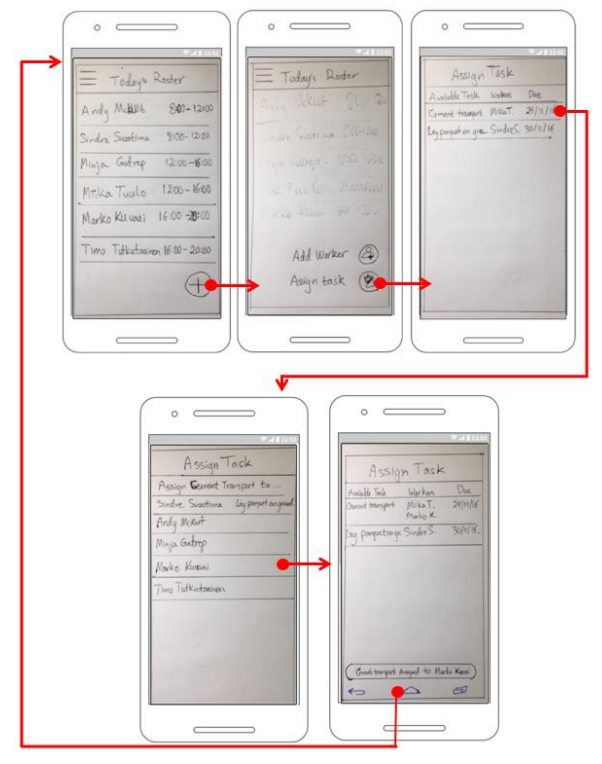 22:52
Today's Roster
Andy McKurt 8:00-12:00
Sindre Suostima 8:00-12:00
Minja Gatrep 12:00-16:00
Miika Tuulo 12:00-16:00
Marko Kuvaai 16:00-20:00
Timo Tutkutaainen 16:00-20:00
22:52
Today's Roster
Add Worker
Assign task
22:52
Assign Task
Available Task Workers Due
Cement transport Mika T. 29/11/16
Lay parquet on Sindre S. 30/11/16
22:52
Assign Task
Assign Cement Transport to ...
Sindre Suostima Lay parquet on ground
Andy McKurt
Minja Gatrep
Marko Kuvaai
Timo Tutkutaainen
22:52
Assign Task
Available Task Workers Due
Cement transport Mika T., 29/11/16
Marko K.
Lay parquet Sindre S. 30/11/16.
Cement transport Assigned to Marko Kuvaai